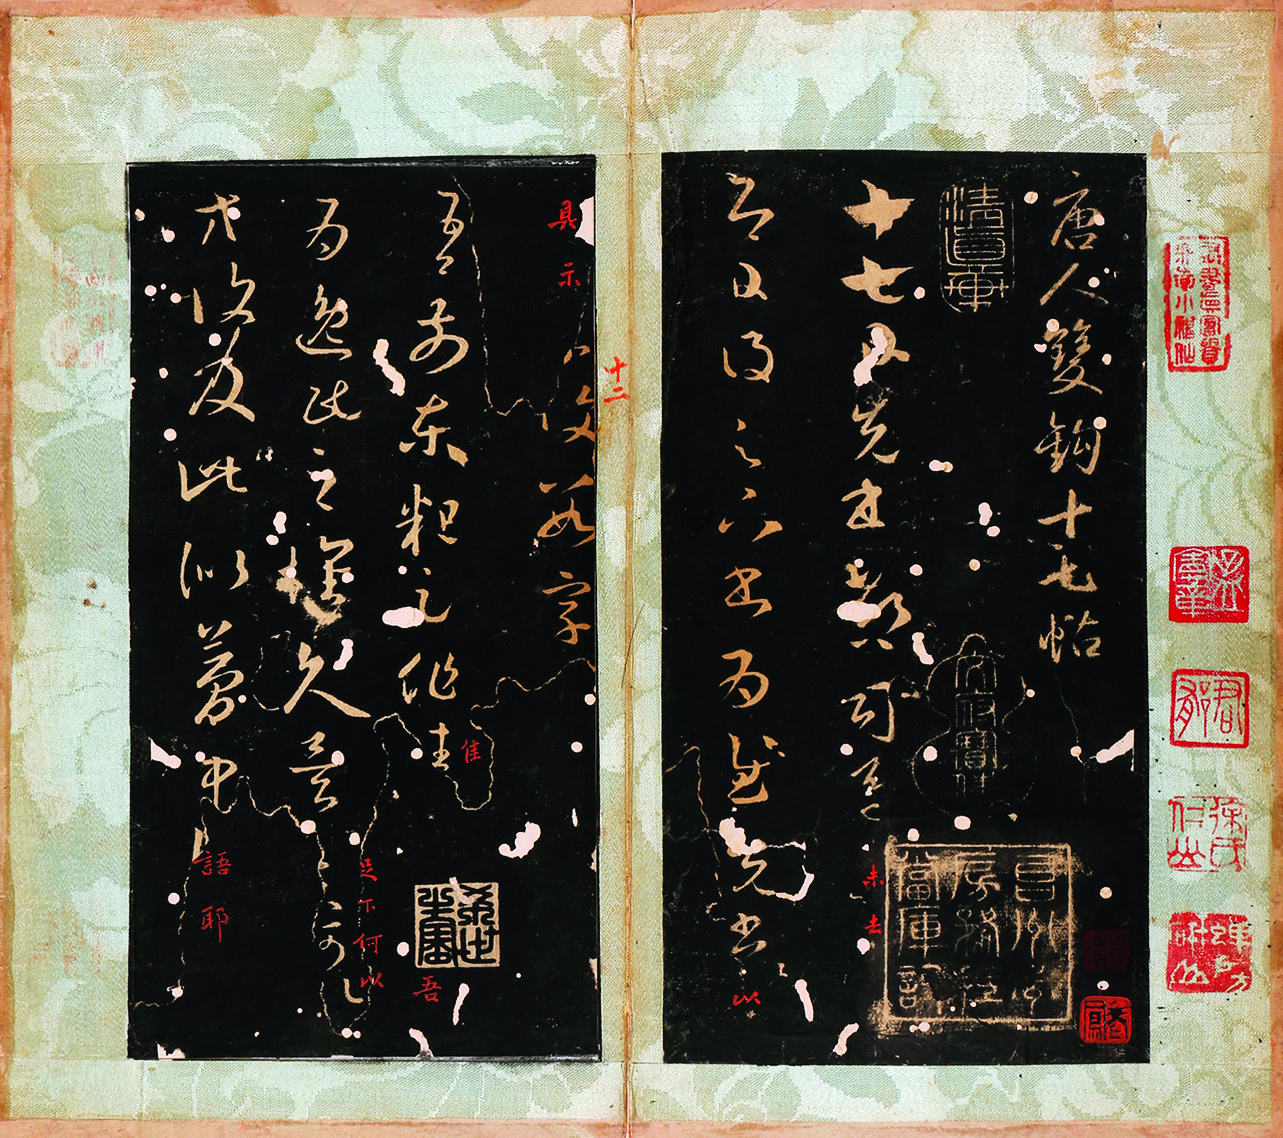 唐人雙鈎十七帖
十七日先書郗司馬未去
即日得足下書為慰先書以
具示復數字
十二
吾前東粗足作佳
吾
為逸民之懷久矣足下何以
方復及此似夢中語耶